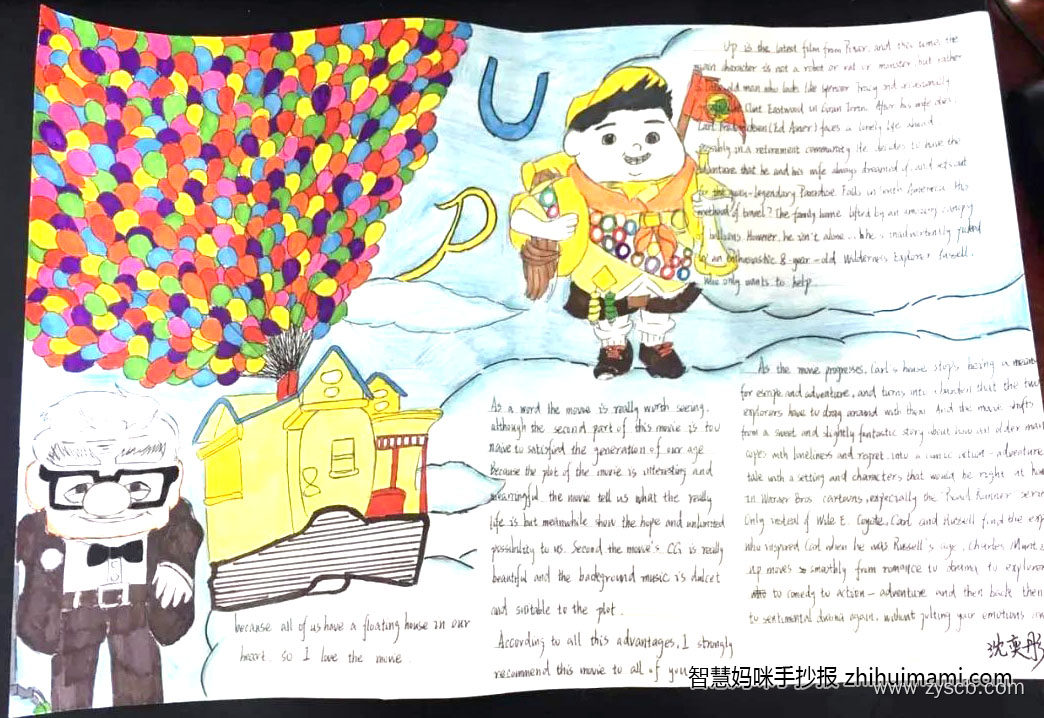 UP
Up is the latest film from Pixar, and this time, the
main character is not a robot or rat or monster, but rather
old man who looks like Spencer Tracy and
Clint Eastwood in Gran Torino. After his wife dies,
Carl (Ed Asner) faces a lonely life ahead
possibly in a retirement community. He decides to have the
adventure that he and his wife always dreamed of, and sets out
for the legendary Paradise Falls in South America. His
method of travel? The family home lifted by an amazing canopy
balloons. However, he isn't alone... he's inadvertently joined
by an enthusiastic 8-year-old Wilderness Explorer
who only wants to help.
As the movie progresses, Carl's house stops being a means
for escape and adventure, and turns into a burden that the two
explorers have to drag around with them. And the movie shifts
from a sweet and slightly fantastic story about how an older man
copes with loneliness and regret, into a comic action-adventure
tale with a setting and characters that would be right at
in Warner Bros. cartoons, especially the Road Runner
Only instead of Wile E. Coyote, Carl and Russell find the
who inspired Carl when he was Russell's age, Charles
up moves smoothly from romance to drama to
to comedy to action-adventure and then back
to sentimental drama again, without putting your emotions
沈奕彤
As a word the movie is really worth seeing,
although the second part of this movie is too
naive to satisfied the generation of our age
Because the plot of the movie is interesting and
meaningful, the movie tell us what the really
life is but meanwhile show the hope and unlimited
possibility to us. Second the movie's CG is really
beautiful and the background music is dulcet
and suitable to the plot.
According to all this advantages, I strongly
recommend this movie to all of you
because all of us have a floating house in our
heart. so I love the movie.
智慧妈咪手抄报 zhihuimami.com
www.zyscb.com